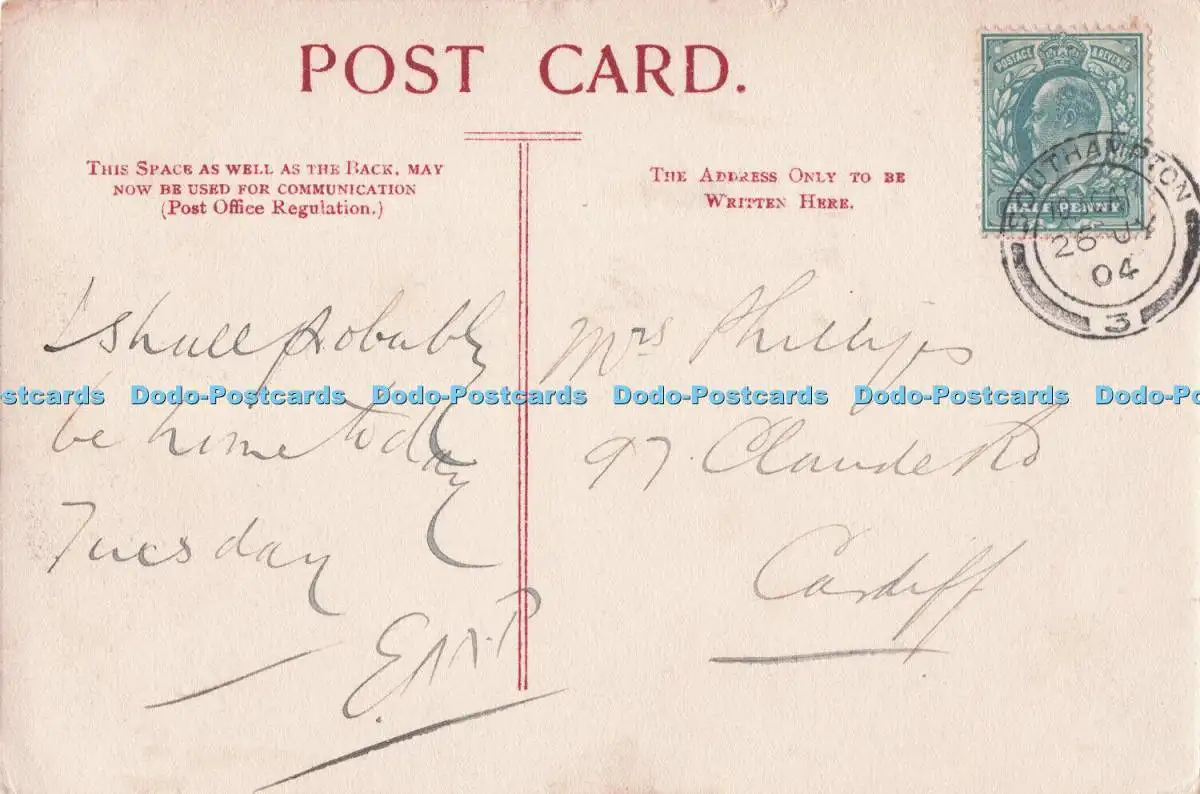 POST CARD.
THIS SPACE AS WELL AS THE BACK, MAY
NOW BE USED FOR COMMUNICATION
(Post Office Regulation.)
THE ADDRESS ONLY TO BE
WRITTEN HERE.
POSTAGE & REVENUE
HALF PENNY
SOUTHAMPTON
26
04
3
I shall probably
be home today
Tuesday
Mrs Phillips
97 Claude Rd
Cardiff
stcards Dodo-Postcards Dodo-Postcards Dodo-Postcards Dodo-Postcards Dodo-Po